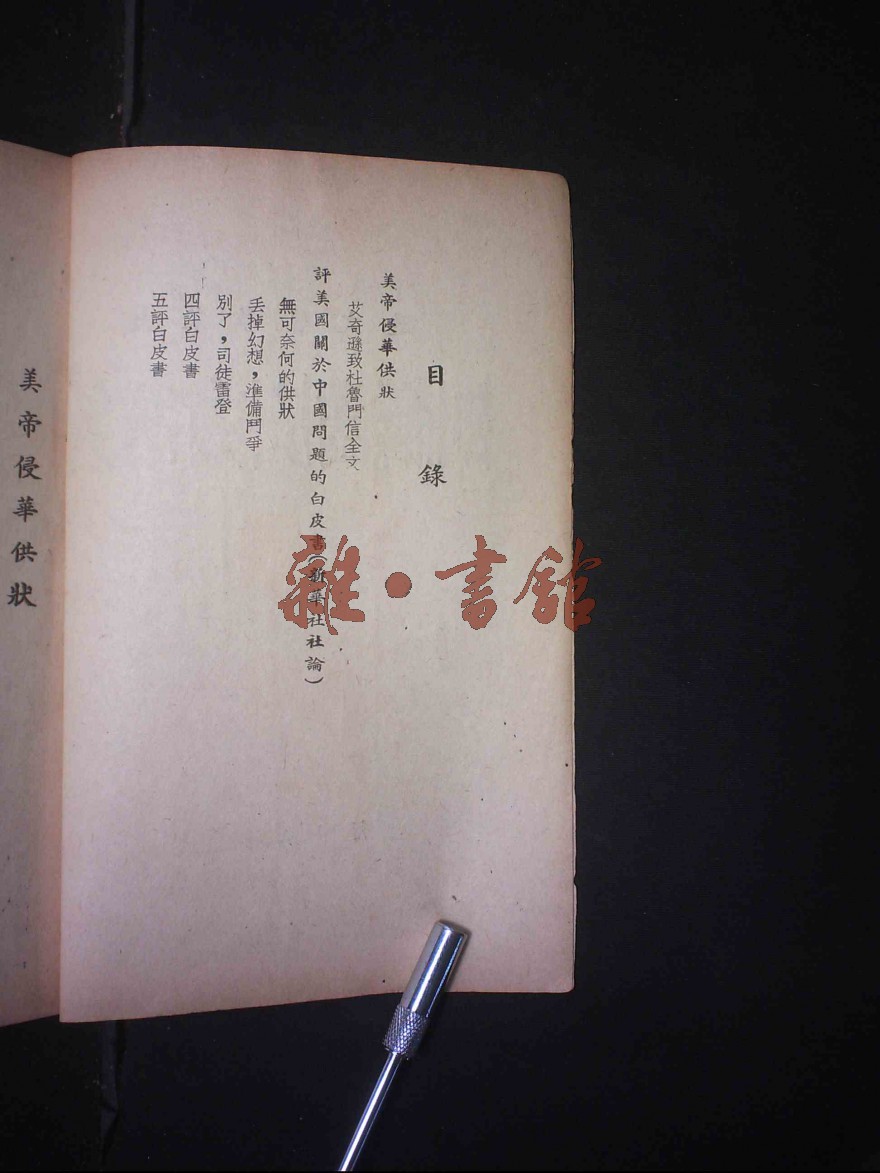 目錄
美帝侵華供狀
艾奇遜致杜魯門信全文
評美國關於中國問題的白皮書(新華社社論)
無可奈何的供狀
丢掉幻想,準備鬥爭
別了,司徒雷登
四評白皮書
五評白皮書
美帝侵華供狀
雜·書館